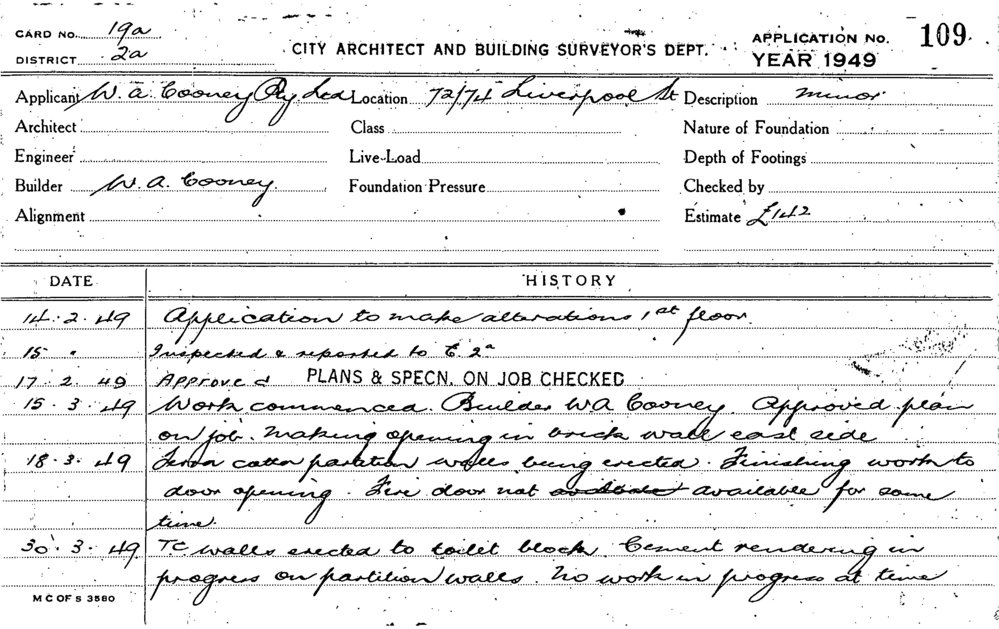 CARD No. 19a
DISTRICT 2a
CITY ARCHITECT AND BUILDING SURVEYOR'S DEPT.
APPLICATION No. 109
YEAR 1949
Applicant W. A. Cooney Pty Ltd Location 72/74 Liverpool St Description minor
Architect Class Nature of Foundation
Engineer Live-Load Depth of Footings
Builder W. A. Cooney Foundation Pressure Checked by
Alignment Estimate £142
DATE HISTORY
14.2.49 Application to make alterations 1st floor.
15 " Inspected & reported to C. 2a
17.2.49 Approved PLANS & SPECN. ON JOB CHECKED
15.3.49 Work commenced. Builder WA Cooney. Approved plan
on job. Making opening in brick wall east side
18.3.49 Terra cotta partition walls being erected. Finishing work to
door opening. Fire door not available for some
time.
30.3.49 TC walls erected to toilet block. Cement rendering in
progress on partition walls. No work in progress at time
M C OF S 3580